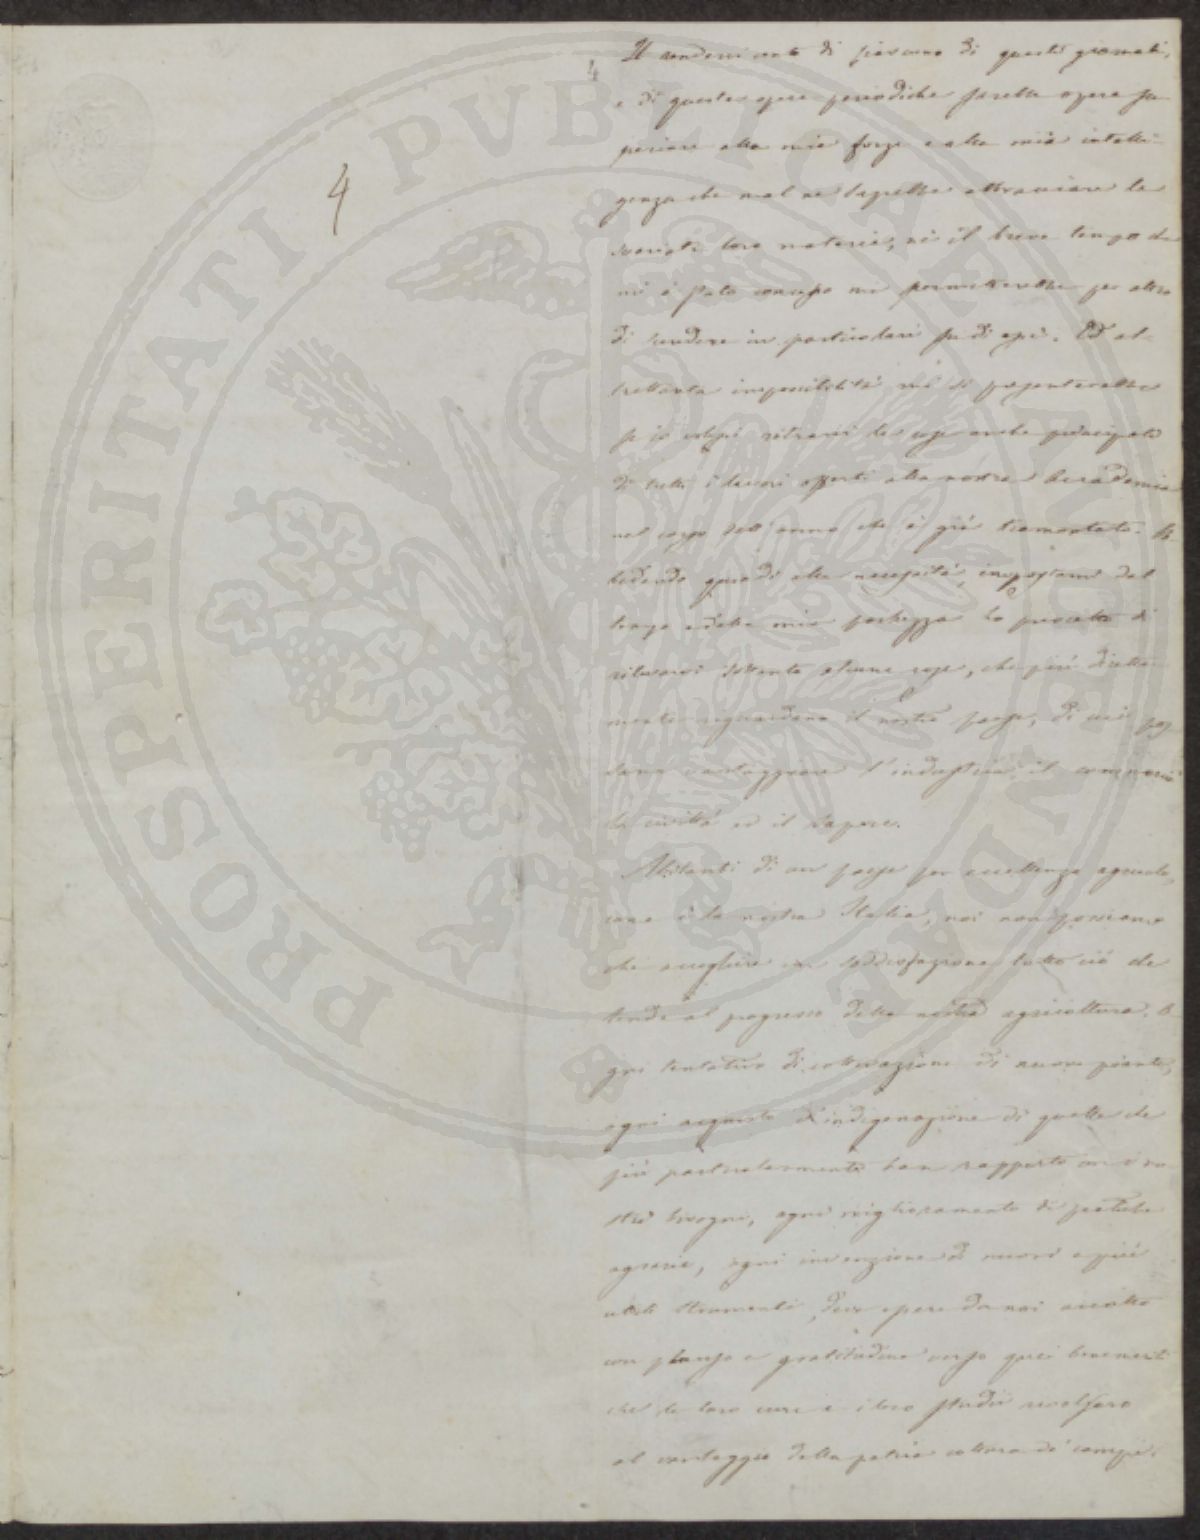 4
4
Il rendervi conto di ciascuno di questi giornali,
e di queste opere periodiche sarebbe opera su-
periore alle mie forze e alla mia intelli-
genza che mal ne saprebbe abbracciare le
svariate loro materie, nè il breve tempo che
mi è stato concesso mi permetterebbe per altro
di scendere in particolari su di essi. Ed al-
trettanta impossibilità mi si presenterebbe
se io volessi ritrarvi le cose anche principali
di tutti i lavori offerti alla nostra Accademia
nel corso dell'anno che è già tramontato. Ub-
bidendo quindi alla necessità impostami dal
tempo e dalla mia pochezza ho prescelto di
ritrarvi soltanto alcune cose, che più diretta-
mente riguardano il nostro paese, di cui pos-
sano vantaggiare l'industria il commercio
la civiltà ed il sapere.
Abitanti di un paese per eccellenza agricolo,
come è la nostra Italia, noi non possiamo
che accogliere con soddisfazione tutto ciò che
tende al progresso della nostra agricoltura. O-
gni tentativo di coltivazione di nuove piante,
ogni acquisto d'indigenazione di quelle che
più particolarmente han rapporto con i no-
stri bisogni, ogni miglioramento di pratiche
agrarie, ogni invenzione di nuovi e più
utili stromenti, deve essere da noi accolto
con plauso e gratitudine verso quei benemeriti
che le loro cure e i loro studii rivolsero
al vantaggio della patria coltura de' campi.
PROSPERITATI PUBLICAE AUGENDAE